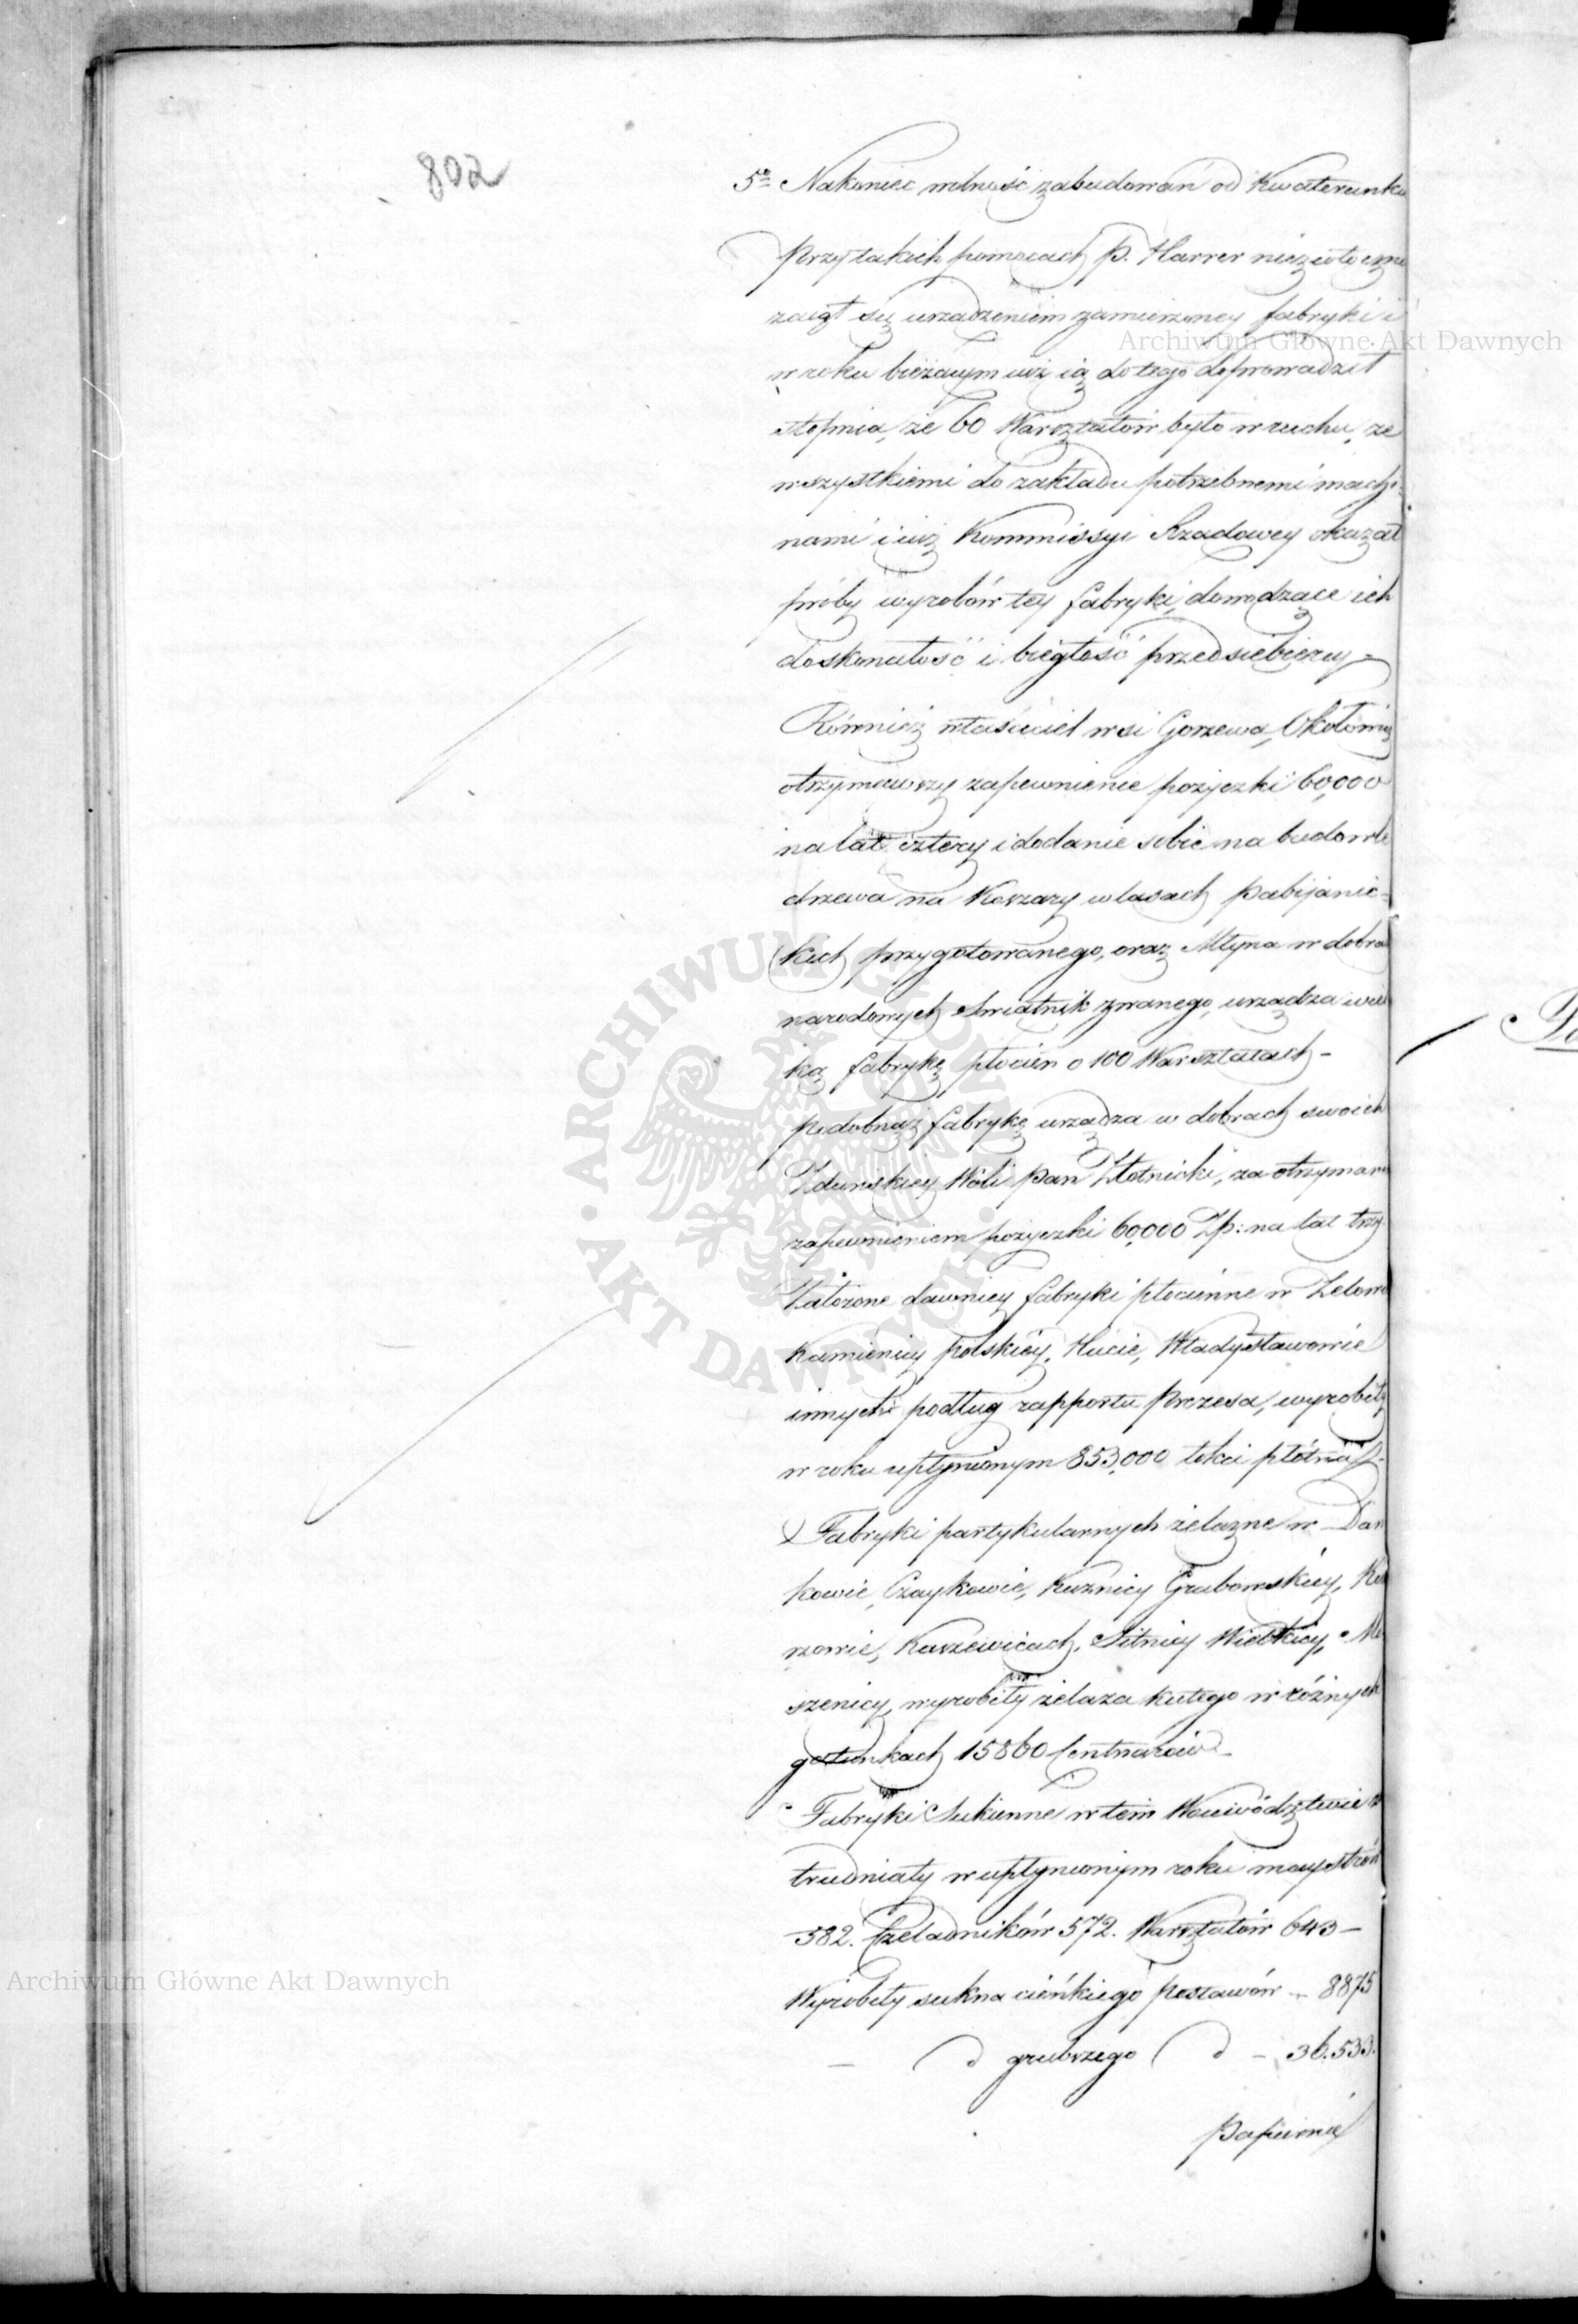 802
5o Nakoniec wolność zabudowań od Kwaterunku
Przy takich pomocach P. Harrer niezwłocznie
zaiął się urządzeniem zamierzoney fabryki i
w roku bieżącym iuż ią do tego doprowadził
stopnia, że 60 Warsztatów było w ruchu, ze
wszystkiemi do zakładu potrzebnemi machi-
nami i iuż Kommissyi Rządowey okazał
próby wyrobów tey fabryki, dowodzące ich
doskonałość i biegłość przedsiębiercy -
Również właściciel wsi Gorzewa,
otrzymawszy zapewnienie pożyczki 60,000
na lat cztery i dodanie sobie na budowle
drzewa na Koszary w lasach Pabijanic-
kich przygotowanego, oraz Młyna w dobrach
narodowych Swiątnik zwanego, urządza wiel
ką fabrykę płócien o 100 Warsztatach -
podobnąż fabrykę urządza w dobrach swoich
Zduńskiey Woli Pan Złotnicki, za otrzymanem
zapewnieniem pożyczki 60,000 Zp: na lat trzy.
Założone dawniey fabryki płócienne w Zelowie
Kamienicy Polskiéy, Hucie, Władysławowie
innych podług rapportu Prezesa, wyrobiły
w roku upłynionym 853,000 łokci płótna
Fabryki partykularnych żelazne w Dan
kowie, Czaykowie, Kuznicy Grabowskiey,
Karzewicach, Silnicy Wielkiey,
szenicy, wyrobiły żelaza kutego w różnych
gatunkach 15860 Centnarów -
Fabryki Sukienne w tem Woiewództwie za
trudniały w upłynionym roku maystrów
582. Czeladników 572. Warsztatów 643 -
Wyrobiły sukna cieńkiego postawów - 8875
- d grubszego d - 36.533.
Papiernie
Archiwum Główne Akt Dawnych
ARCHIWUM GŁÓWNE · AKT DAWNYCH ·
Archiwum Główne Akt Dawnych